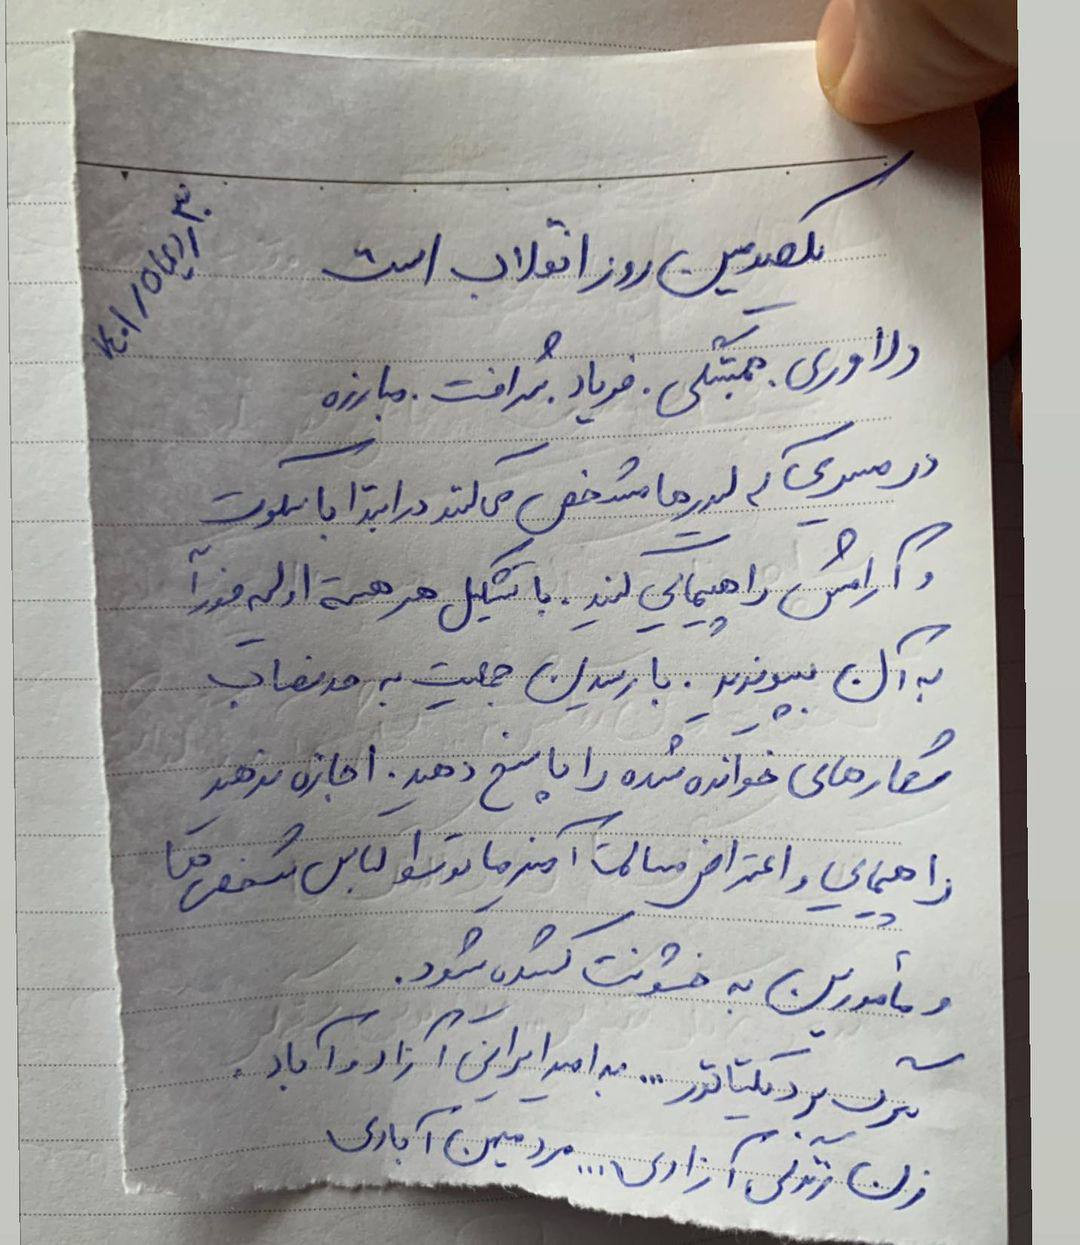 یکصدمین روز انقلاب است
۳۰ / دیماه / ۱۴۰۱
دلاوری . همبستگی . فریاد . شرافت . مبارزه
در مسیری که لیدرها مشخص می کنند در ابتدا با سکوت
و آرامش راهپیمایی کنید . با تشکیل هر هسته اولیه فوراً
به آن بپیوندید . با رسیدن جمعیت به حد نصاب
شعارهای خوانده شده را پاسخ دهید . اجازه ندهید
راهپیمایی و اعتراض مسالمت آمیز ما توسط لباس شخصی ها
و مأمورین به خشونت کشیده شود .
مرگ بر دیکتاتور ... به امید ایرانی آزاد و آباد .
زن زندگی آزادی ... مرد میهن آبادی